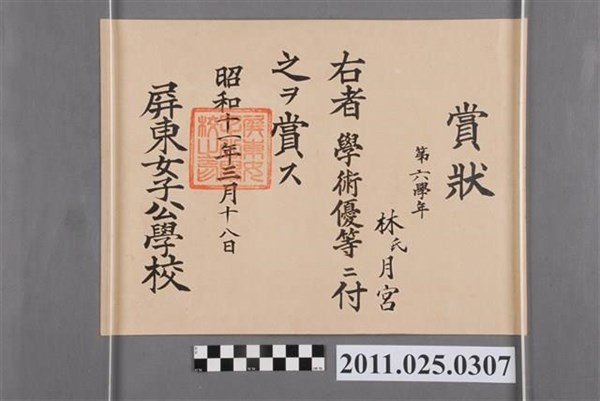 賞狀
第六學年
林氏月宮
右者學術優等ニ付
之ヲ賞ス
昭和十一年三月十八日
屏東女子公學校
2011.025.0307